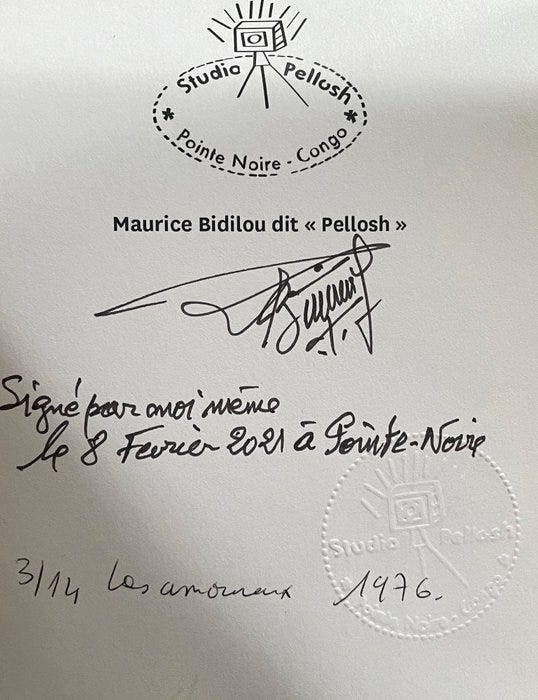 Studio Pellosh
* Pointe Noire - Congo *
Maurice Bidilou dit « Pellosh »
Signé par moi même
le 8 Fevrier 2021 à Pointe-Noire
Studio Pellosh
Pointe Noire - Congo
3/14 Les amoureux 1976.